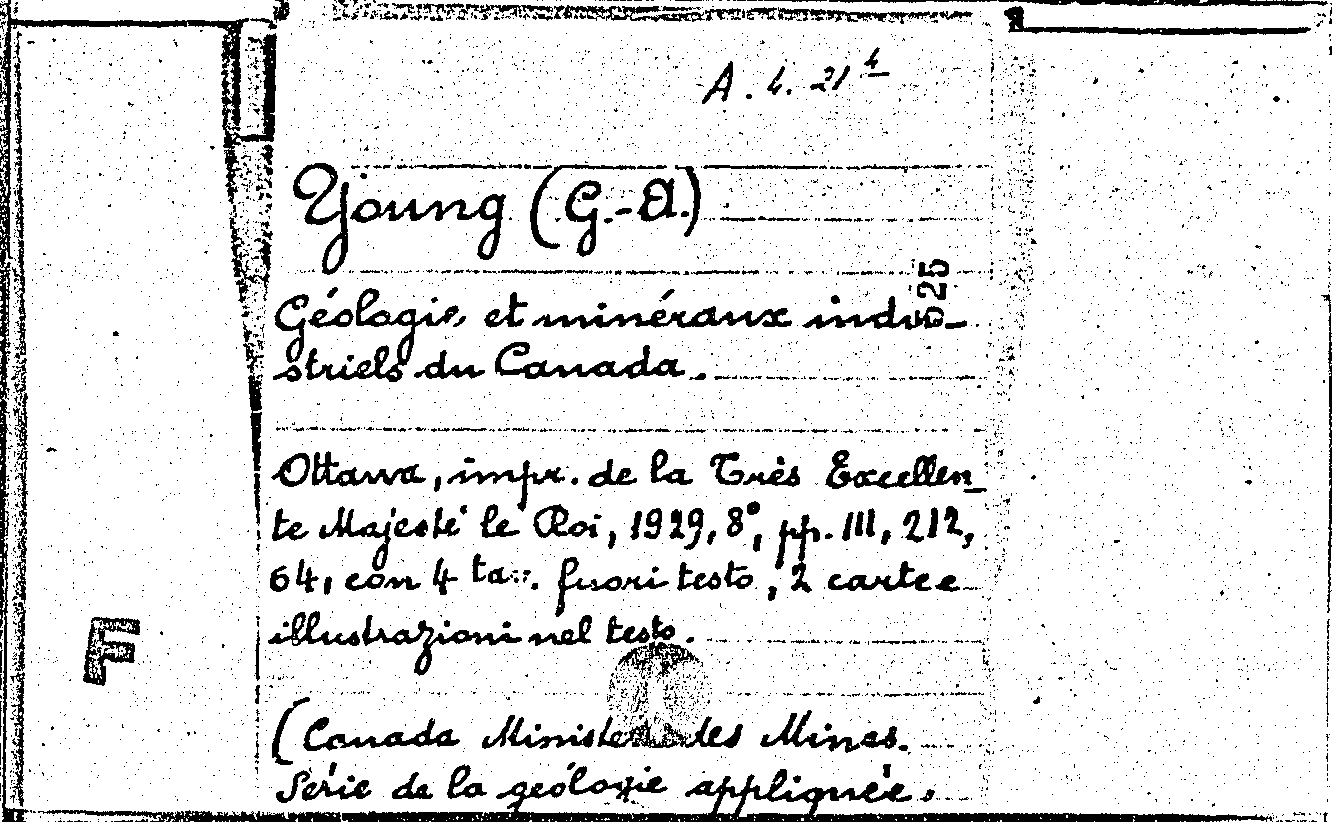 A. 4. 21 4
Young (G.-A.)
Géologie et minéraux indu-
striels du Canada.
Ottawa, impr. de la Très Excellen-
te Majesté le Roi, 1929, 8°, pp. III, 212,
64, con 4 tav. fuori testo, 2 carte e
illustrazioni nel testo.
F
(Canada Ministère des Mines.
Série de la géologie appliquée.